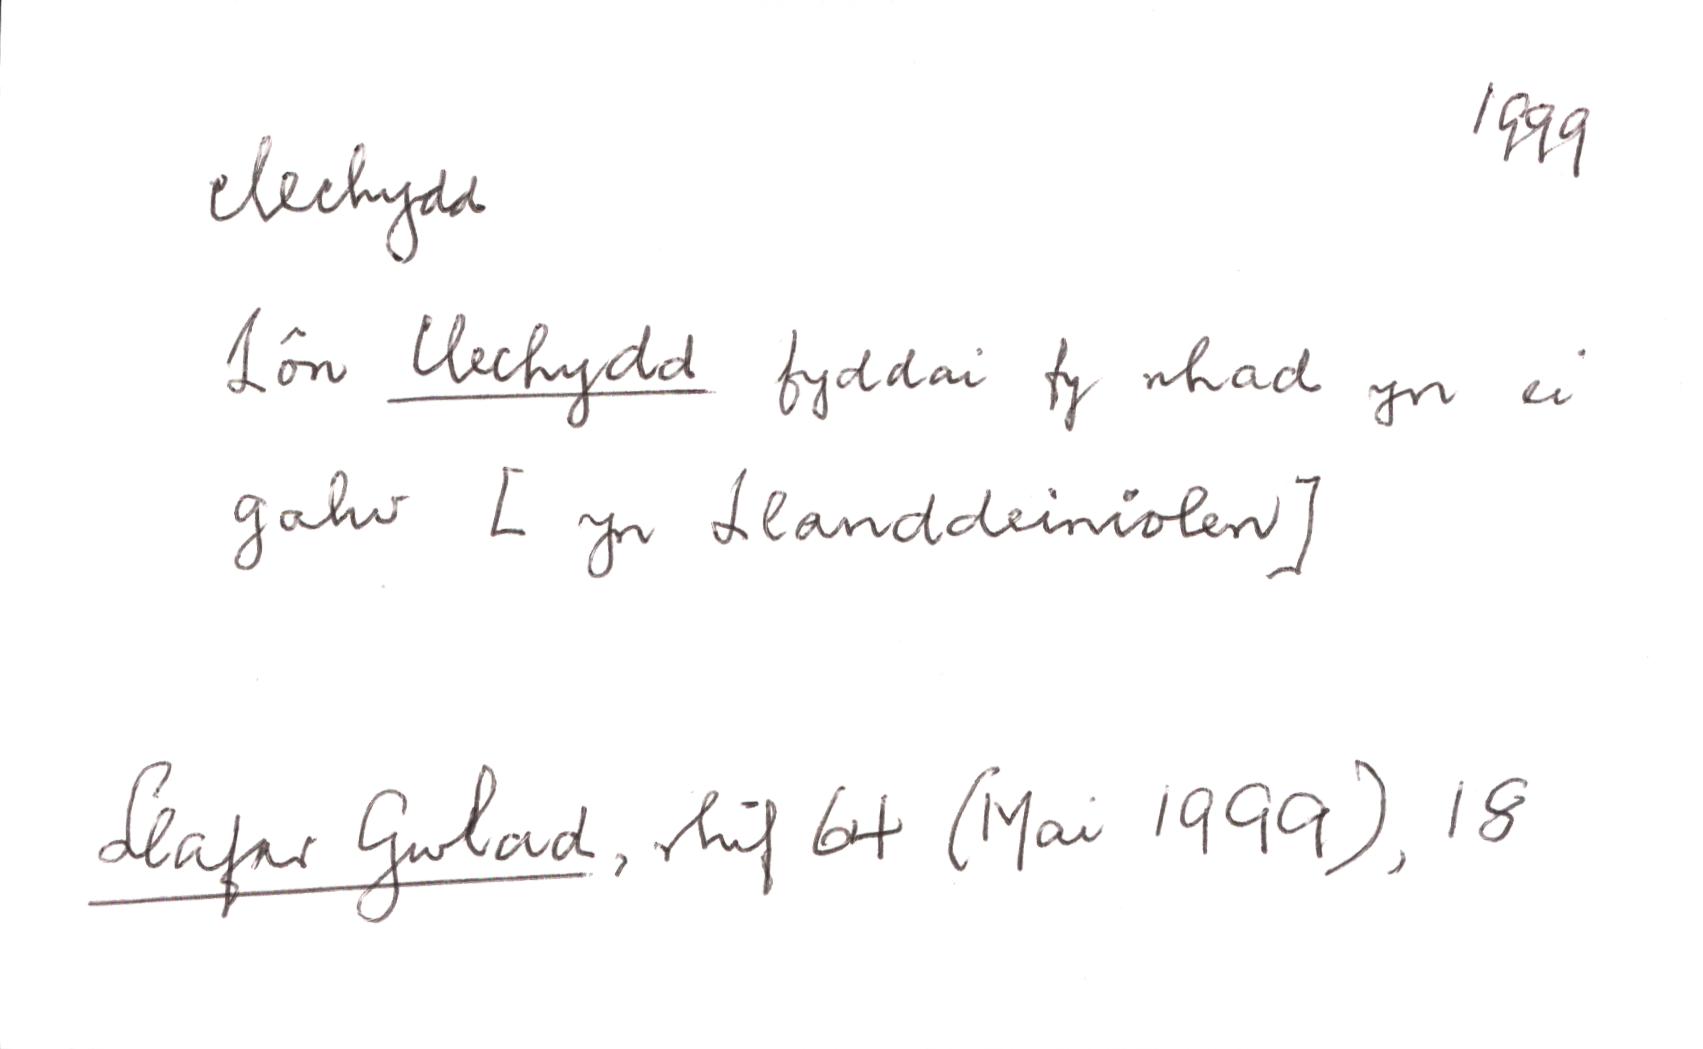 1999
clechydd
Lôn Clechydd fyddai fy nhad yn ei
galw [ yn Llanddeiniolen]
Llafar Gwlad, rhif 64 (Mai 1999), 18